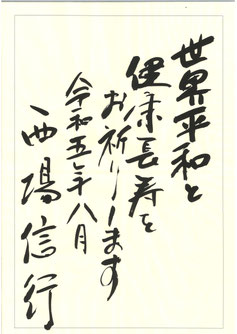 世界平和と
健康長寿を
お祈りします
令和五年八月
西場信行